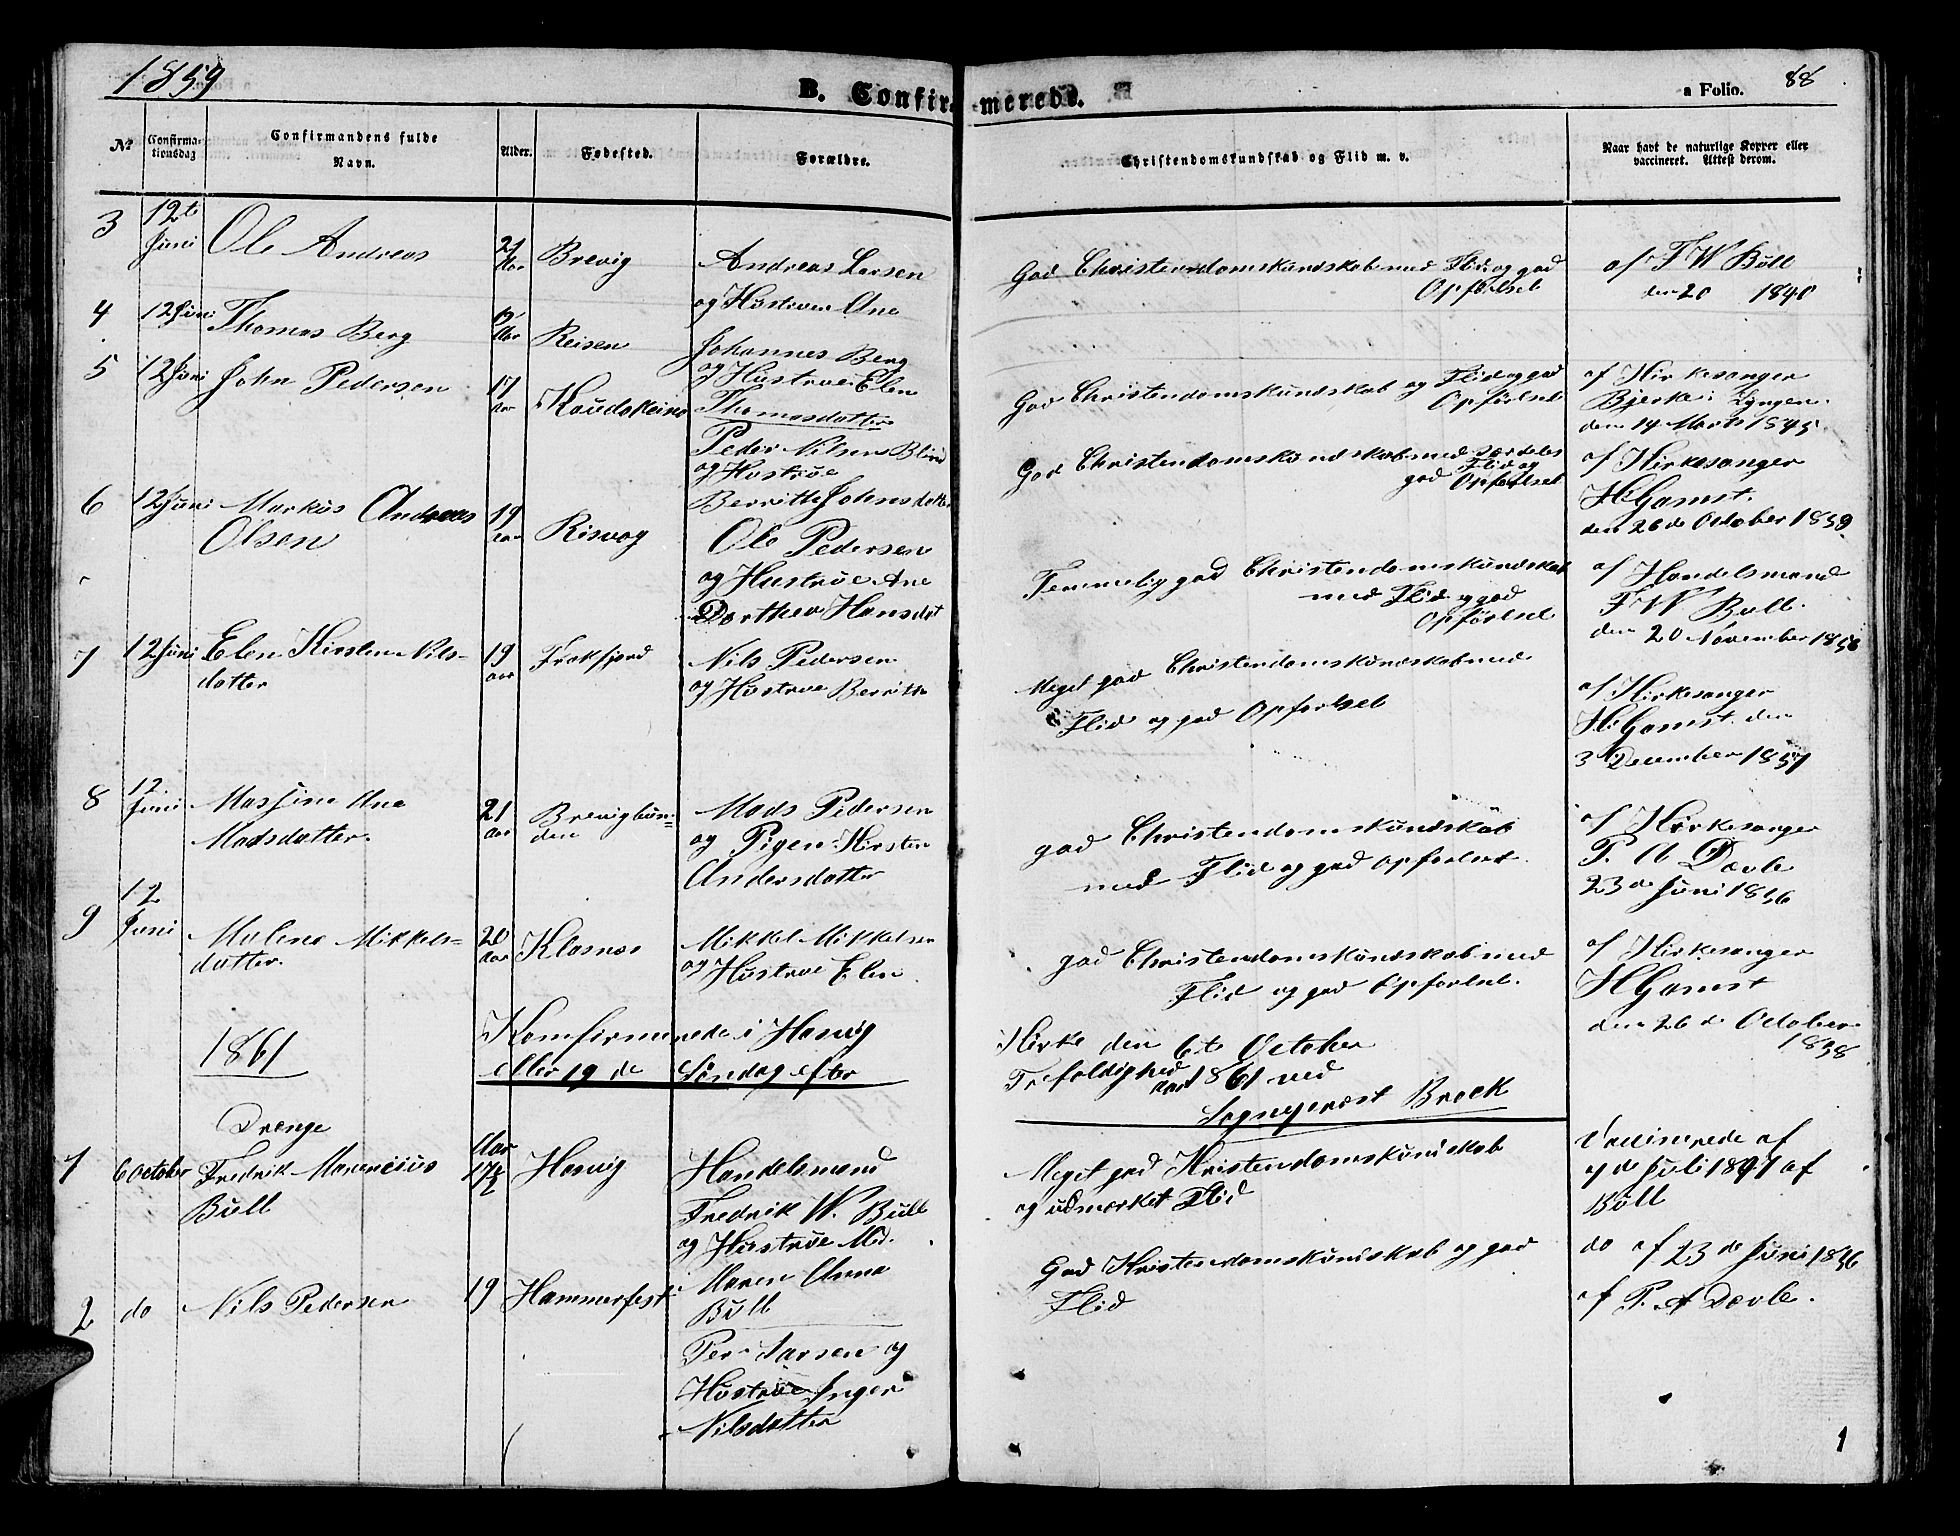 1859
B. Confirmerede.
a Folio. 88
No
Confirmationsdag
Confirmandens fulde Navn.
Alder.
Fødested.
Forældre.
Christendomskundskab og Flid m. v.
Naar havt de naturlige Kopper eller vaccineret. Attest derom.
3 12te Juni Ole Andreas 21 Aar Brevig
Andreas Larsen
og Hustrue Ane
God Christendomskundskab med Flid og god
Opførelsel
af F W Bull
den 20 1840
4 12 Juni Thomas Berg Aar Reisen
Johannes Berg
og Hustrue Elen
Thomasdatter
God Christendomskundskab og Flid og god
Opførlsel
af Kirkesanger
Bjerke i Lyngen.
den 14 Marts 1845.
5 12 Juni John Pedersen 17 aar Koudokeino
Peder Nilsen Blind
og Hustrue
Berritte Johnsdatter
God Christendomskundskab med særdeles
Flid og
god Opførlsel
af Kirkesanger
H Gamst.
den 26de October 1859
6 12 Juni Markus Andreas
Olsen
19 aar Risvog
Ole Pedersen
og Hustrue Ane
Dorthea Hansdat
Temmelig god Christendomskundskab
med Flid og god
Opførlsel
af Handelsmand
F W Bull.
den 20 November 1856
7 12 Juni Elen Kirsten Nils-
datter
19 aar Frakfjord
Nils Pedersen
og Hustrue Berritte
Meget god Christendomskundskab med
Flid og god Opførlsel
af Kirkesanger
H Gamst. den
3 December 1857
8 12 Juni Massine Ane
Madsdatter.
21 aar Brevigbun=
den
Mads Pedersen
og Pigen Kirsten
Andersdatter
god Christendomskundskab
med Flid og god Opførlsel.
af Kirkesanger
P. A Dævle
23de Juni 1856
9 12 Juni Malene Mikkels=
datter.
20 aar Klasnes
Mikkel Mikkelsen
og Hustrue Elen
god Christendomskundskab med
Flid og god Opførlsel.
af Kirkesanger
H Gamst
den 26de October
1858
1861
Komfirmerede i Hasvig Kirke den 6te October
eller 19de Søndag efter Trefoldighed aar 1861 ved
Sognepræst Brock
Drenge
1 6 October Fredrik Marencius
Bull
Aar
17½
Hasvig
Handelsmand
Fredrik W. Bull
og Hustrue Md.
Maren Anna
Bull
Meget god Kristendomskundskab
og udmærket Flid
Vaccinerede af
7de Juli 1847 af
Bull
2 do Nils Pedersen 19 Hammerfest
Per Larsen og
Hustrue Inger
Nilsdatter
God Kristendomskundskab og god
Flid
do af 23de Juni 1856
af P. A Dævle.
1